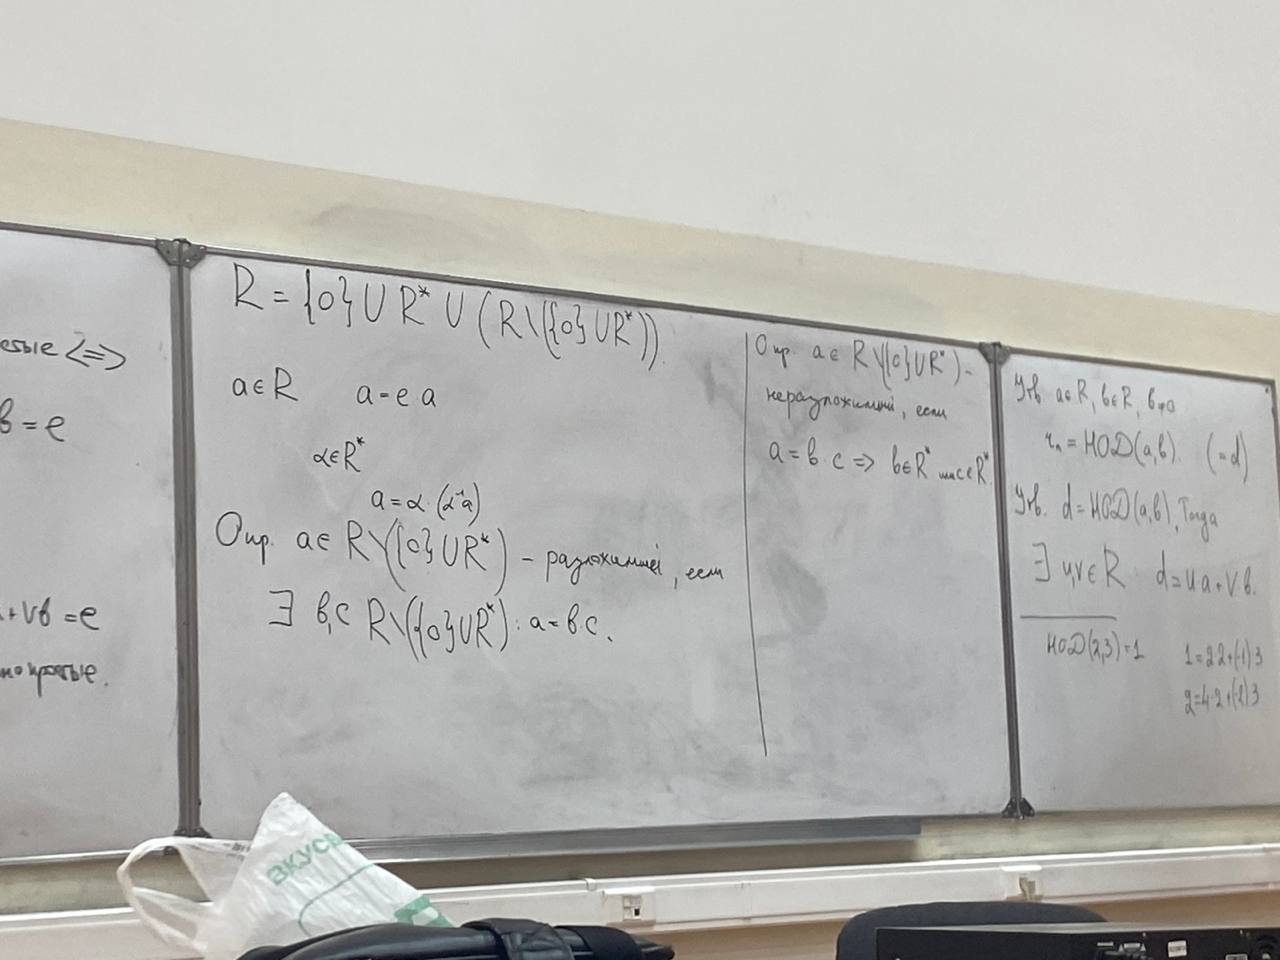 <=>
в = e
+ Vв = e
R = {0} ∪ R* ∪ (R\({0} ∪ R*))
a ∈ R    a = e · a
α ∈ R*
a = α · (α⁻¹a)
Опр. a ∈ R\({0} ∪ R*) – разложимый, если
∃ в,c R\({0} ∪ R*) : a = в·c.
Опр. a ∈ R\({0} ∪ R*) –
неразложимый, если
a = в · c => в ∈ R* или c ∈ R*.
Утв. a ∈ R, в ∈ R, в ≠ 0
rₙ = НОД(a,в). (= d)
Утв. d = НОД(a,в), Тогда
∃ u,v ∈ R : d = u a + v в.
НОД(2,3) = 1
1 = 2·2 + (-1)·3
2 = 4·2 + (-2)·3
ВКУС